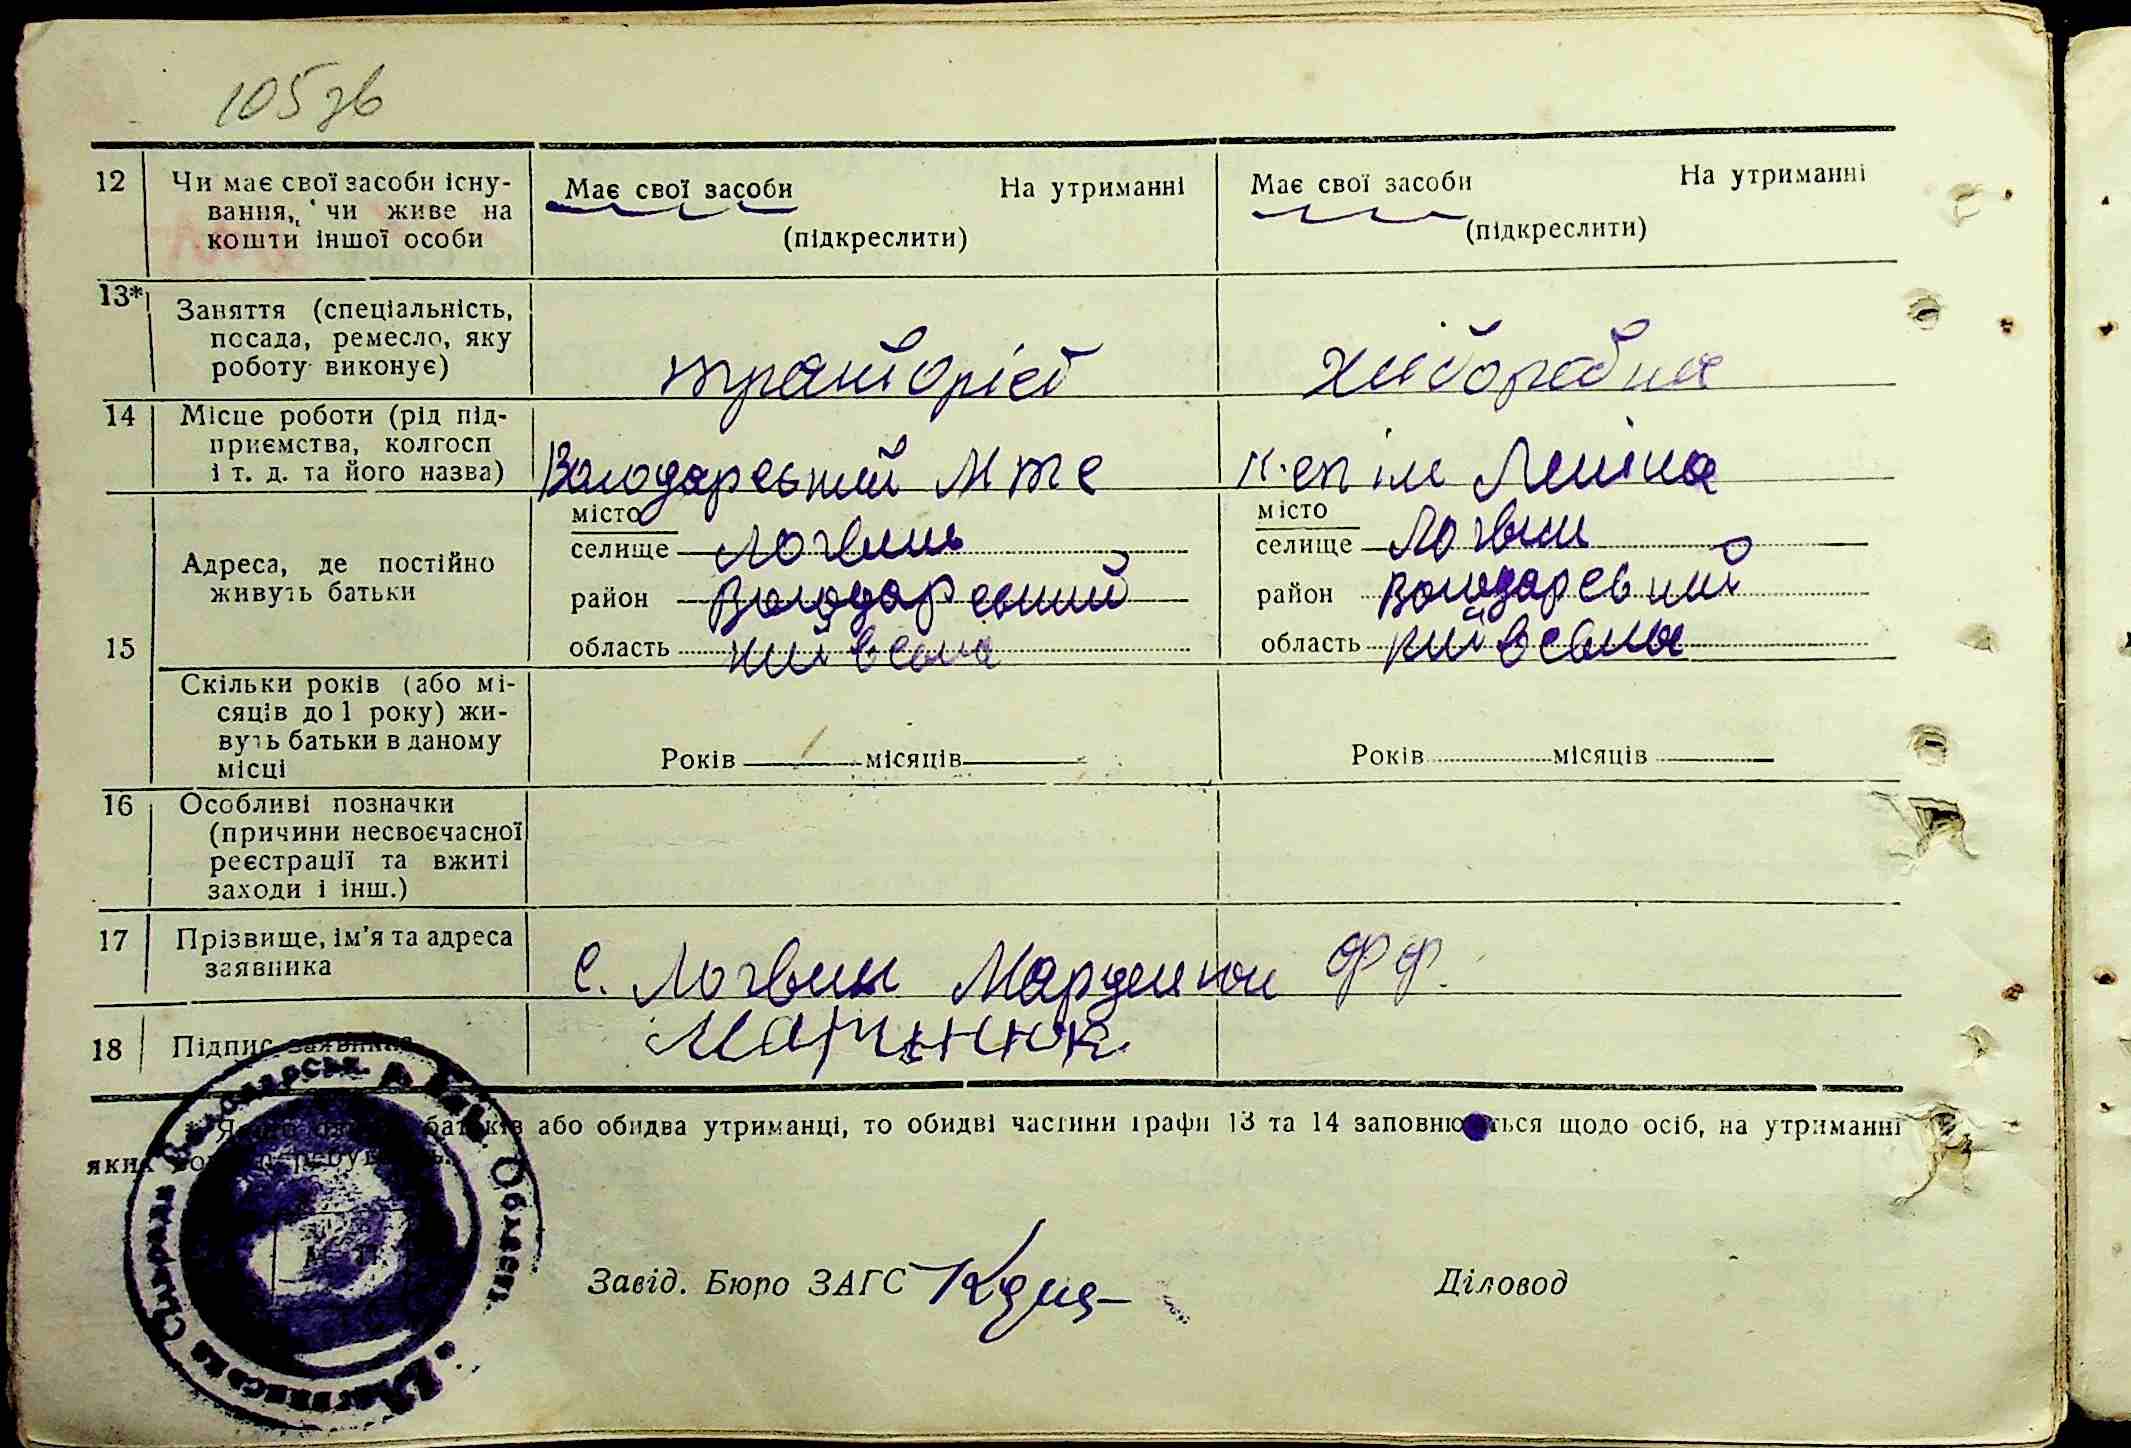 105 зв
12 Чи має свої засоби існу- Має свої засоби На утриманні Має свої засоби На утриманні
вання, чи живе на
кошти іншої особи (підкреслити) (підкреслити)
13* Заняття (спеціальність,
посада, ремесло, яку
роботу виконує) тракторіст хліборобка
14 Місце роботи (рід під-
приємства, колгосп
і т. д. та його назва) Володарський мтс к-сп ім Леніна
15 Адреса, де постійно
живуть батьки
місто місто
селище Логвин селище Логвин
район Володарський район Володарський
область київська область київська
Скільки років (або мі-
сяців до 1 року) жи-
вуть батьки в даному
місці Років місяців Років місяців
16 Особливі позначки
(причини несвоєчасної
реєстрації та вжиті
заходи і інш.)
17 Прізвище, ім'я та адреса
заявника с. Логвин Ф Ф.
18 Підпис заявника
* Якщо батьків або обидва утриманці, то обидві частини графи 13 та 14 заповнюються щодо осіб, на утриманні
яких
Завід. Бюро ЗАГС Діловод
Область